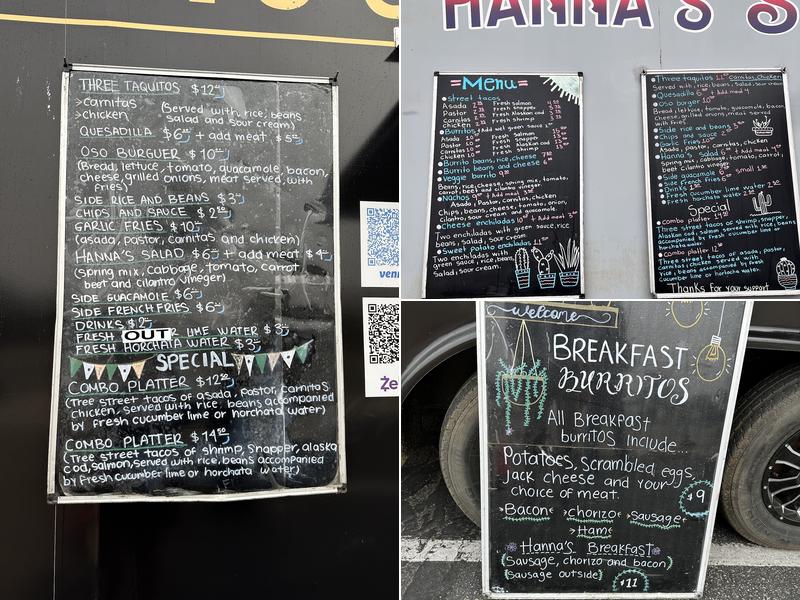 THREE TAQUITOS $12
>carnitas
>chicken
(Served with, rice, beans
salad and sour cream)
QUESADILLA $6 + add meat $5
OSO BURGUER $10
(Bread, lettuce, tomato, guacamole, bacon,
cheese, grilled onions, meat served, with
fries)
SIDE RICE AND BEANS $3
CHIPS AND SAUCE $2
GARLIC FRIES $10
(asada, pastor, carnitas and chicken)
HANNA'S SALAD $6 + add meat $4
(spring mix, cabbage, tomato, carrot
beet and cilantro vineger)
SIDE GUACAMOLE $6
SIDE FRENCH FRIES $6
DRINKS $2
FRESH OUT R LIME WATER $3
FRESH HORCHATA WATER $3
SPECIAL
COMBO PLATTER $12
(Tree street tacos of asada, pastor, carnitas
chicken, served with rice, beans accompanied
by fresh cucumber lime or horchata water)
COMBO PLATTER $14
(Tree street tacos of shrimp, snapper, alaska
cod, salmon, served with rice, beans accompanied
by fresh cucumber lime or horchata water)
venm
Ze
HANNA'S S
Menu
Street tacos
Asada
Pastor
Carnitas
Chicken
Fresh salmon
Fresh snapper
Fresh Alaskan cod
Fresh shrimp
Burritos
Asada
Pastor
Carnitas
Chicken
Fresh salmon
Fresh snapper
Fresh Alaskan cod
Fresh shrimp
Burrito beans, rice, cheese
Burrito beans and cheese
Veggie burrito
Beans, rice, cheese, spring mix, tomato,
carrot, beet and cilantro vineger
Nachos
Asada, Pastor, carnitas, chicken
Chips, beans, cheese, tomato, onion,
cilantro, sour cream and guacamole
Cheese enchiladas + Add meat
Two enchiladas with green sauce, rice
beans, salad, sour cream
Sweet potato enchiladas
Two enchiladas with
green sauce, rice, beans,
salad, sour cream
Three taquitos 11 carnitas, chicken
Served with, rice, beans, salad, sour cream
Quesadilla + Add meat
oso burgor 10
Bread, lettuce, tomato, guacamole, bacon
cheese, grilled onions, meat served
with fries
Side rice and beans
Chips and sauce
Garlic fries 10
Asada, pastor, carnitas, chicken
Hanna's Salad + Add meat
Spring mix, cabbage, tomato, carrot,
beet cilantro vineger
Side guacamole small
Side french fries
Drinks
Fresh cucumber lime water
Fresh horchata water
Special
Combo platter
Three street tacos of shrimp, snapper,
Alaskan cod, salmon served with rice, beans
accompanied by fresh cucumber lime or
horchata water
Combo platter
Three street tacos of asada, pastor,
carnitas, chicken served with
rice, beans accompanied by fresh
cucumber lime or horchata water.
Thanks for your support
Welcome
BREAKFAST
BURRITOS
All Breakfast
burritos include...
Potatoes, Scrambled eggs,
Jack cheese and your
choice of meat.
$9
>Bacon >chorizo >Sausage
>Ham
Hanna's Breakfast
(Sausage, chorizo and bacon)
(Sausage outside)
$11